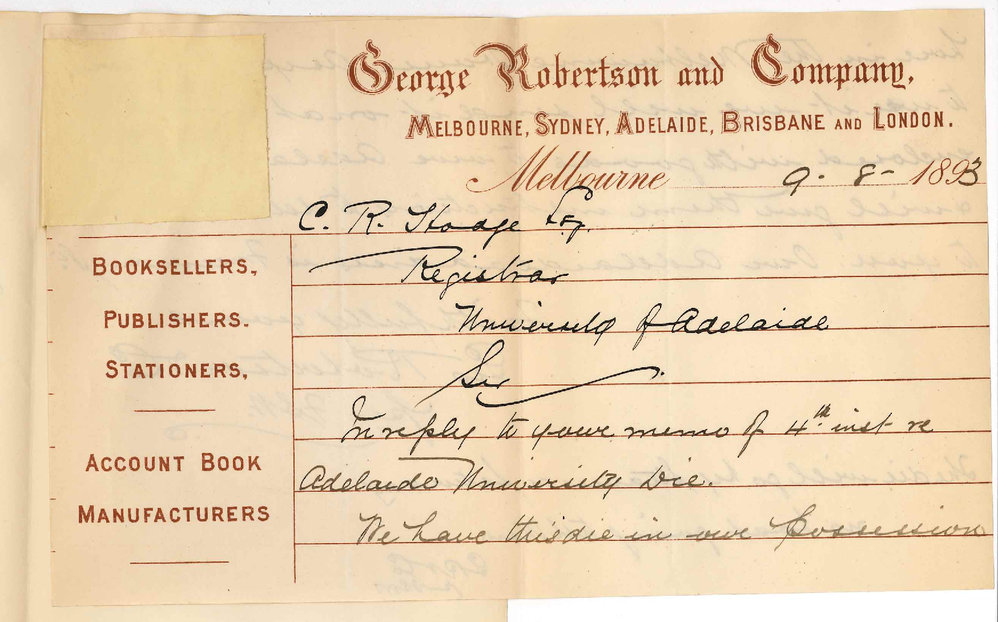 George Robertson and Company,
MELBOURNE, SYDNEY, ADELAIDE, BRISBANE AND LONDON.
Melbourne 9-8-1893
C. R. Hodge Esq.
Registrar
University of Adelaide
Sir
In reply to your memo of 4th inst re
Adelaide University Die.
We have this die in our possession
BOOKSELLERS,
PUBLISHERS.
STATIONERS,
ACCOUNT BOOK
MANUFACTURERS